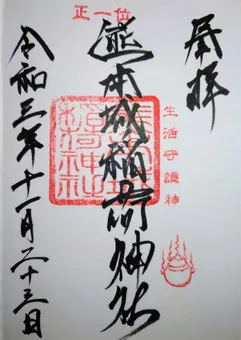 奉拝
正一位
熊本城稲荷神社
生活守護神
令和三年十一月二十三日